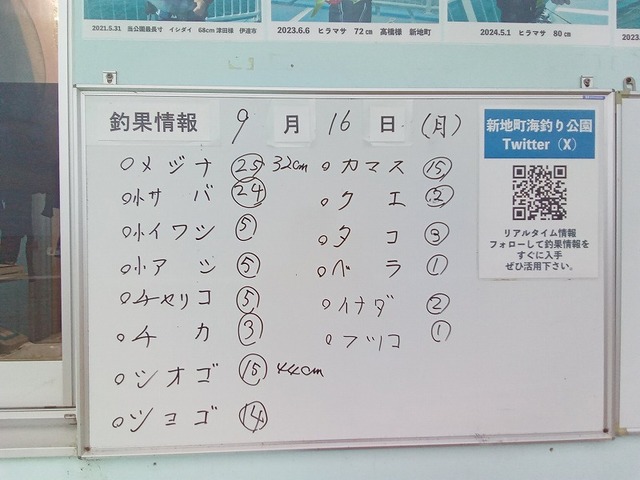 2021.5.31 当公園最長寸 イシダイ 68cm 津田様 伊達市
2023.6.6 ヒラマサ 72㎝ 高橋様 新地町
2024.5.1 ヒラマサ 80㎝
釣果情報 9月16日(月)
○メジナ ㉕ 32cm
○小サバ ㉔
○小イワシ ⑤
○小アジ ⑤
○チャリコ ⑤
○チカ ③
○シオゴ ⑮ 44cm
○ショゴ ⑭
○カマス ⑮
○クエ ②
○タコ ③
○ベラ ①
○イナダ ②
○フッコ ①
新地町海釣り公園
Twitter(X)
リアルタイム情報
フォローして釣果情報を
すぐに入手
ぜひ活用下さい。